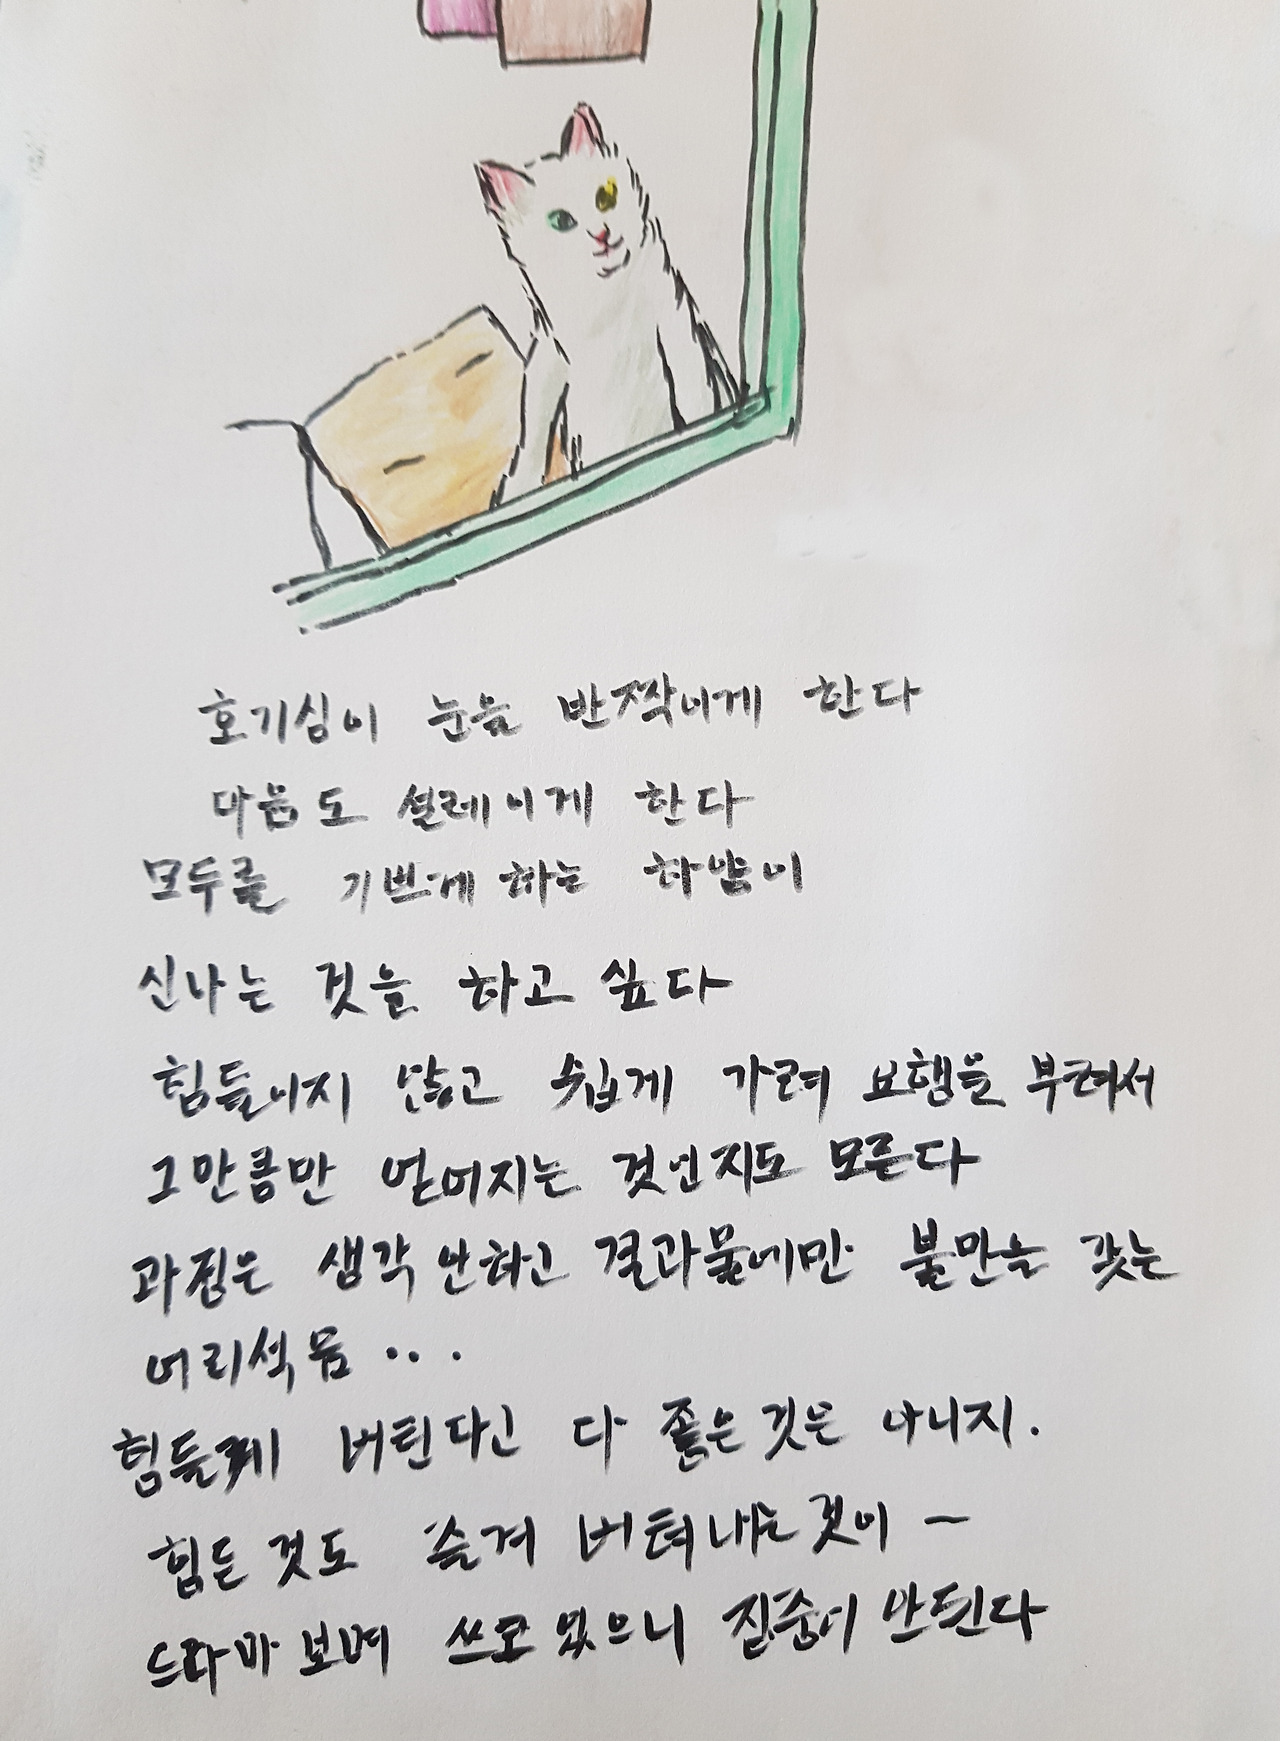 호기심이 눈을 반짝이게 한다
마음도 설레이게 한다
모두를 기쁘게 하는 하얌이
신나는 것을 하고 싶다
힘들이지 않고 쉽게 가려 요행을 부려서
그만큼만 얻어지는 것인지도 모른다
과정은 생각 안하고 결과물에만 불만을 갖는
어리석음 ...
힘들게 버틴다고 다 좋은 것은 아니지.
힘든 것도 즐겨 버텨내는 것이 ~
드라마 보며 쓰고 있으니 집중이 안된다